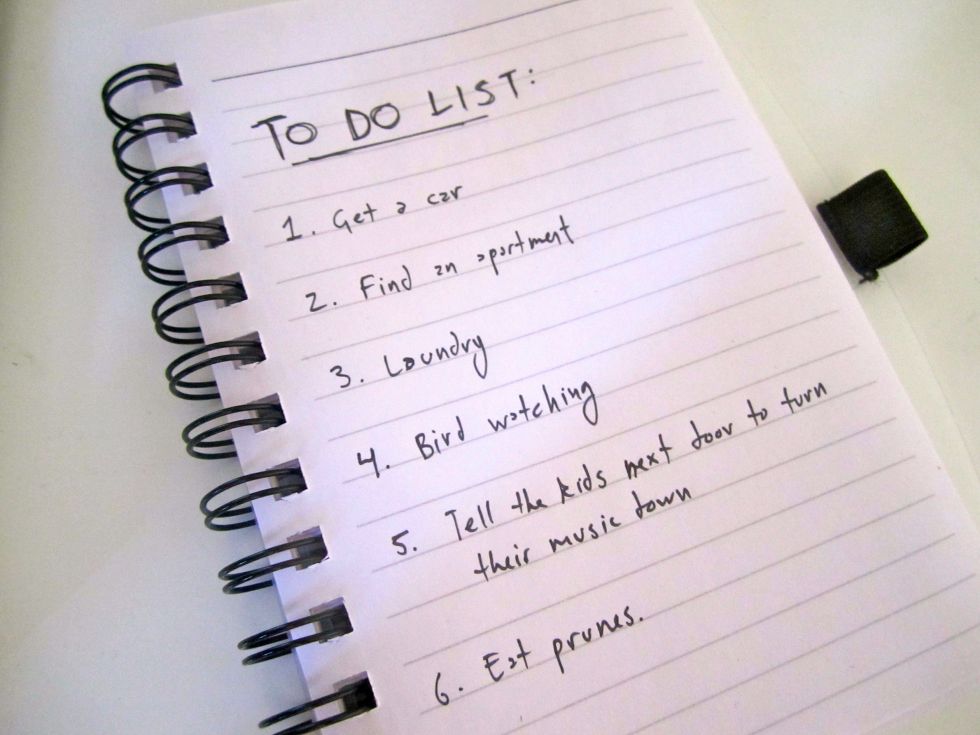 TO DO LIST:
1. Get a car
2. Find an apartment
3. Laundry
4. Bird watching
5. Tell the kids next door to turn
their music down
6. Eat prunes.